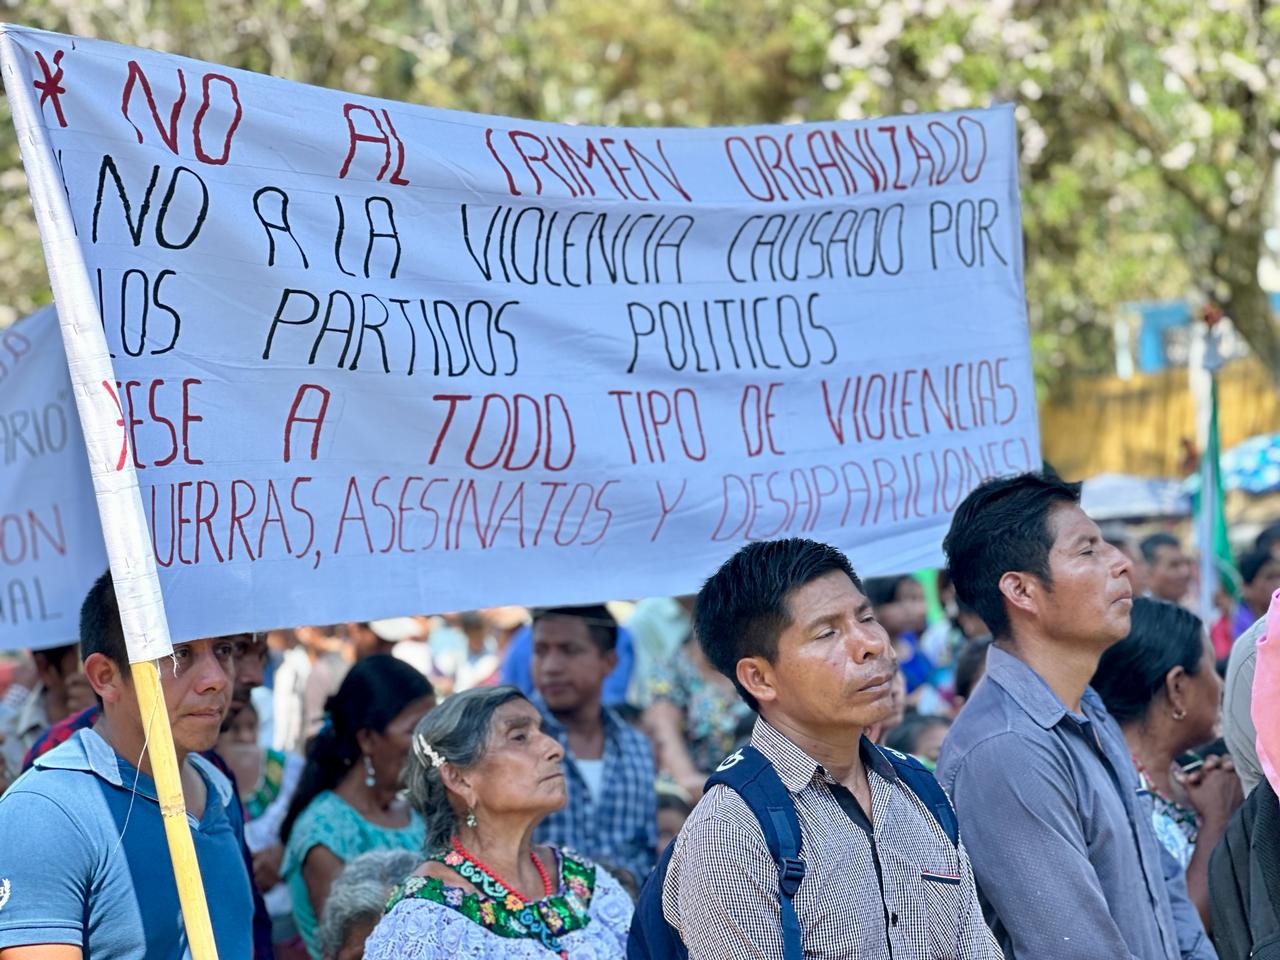 * NO AL CRIMEN ORGANIZADO
NO A LA VIOLENCIA CAUSADO POR
LOS PARTIDOS POLITICOS
*CESE A TODO TIPO DE VIOLENCIAS
GUERRAS, ASESINATOS Y DESAPARICIONES!
ARIO"
ON
NAL